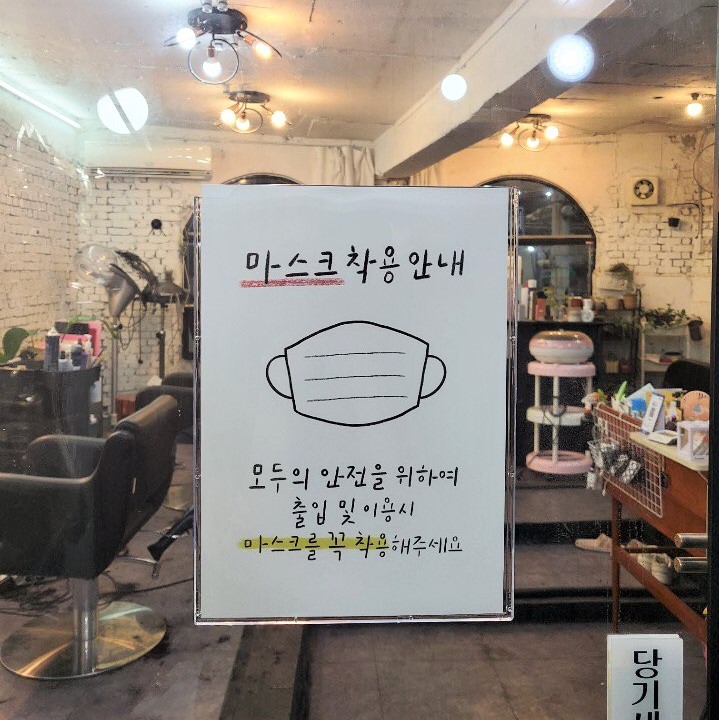 마스크 착용 안내
모두의 안전을 위하여
출입 및 이용시
마스크를 꼭 착용해주세요
당기